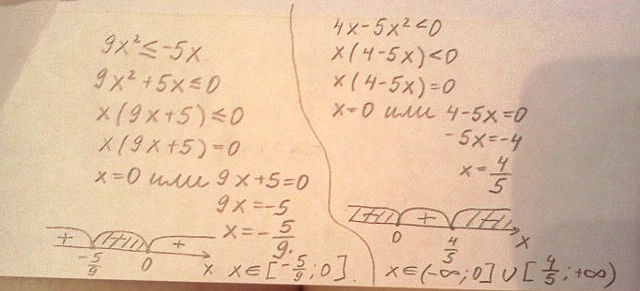 9x² ≤ -5x
9x² + 5x ≤ 0
x(9x + 5) ≤ 0
x(9x + 5) = 0
x = 0 или 9x + 5 = 0
9x = -5
x = -5/9.
+ - +
-5/9 0 x
x ∈ [-5/9; 0].
4x - 5x² < 0
x(4 - 5x) < 0
x(4 - 5x) = 0
x = 0 или 4 - 5x = 0
-5x = -4
x = 4/5
- + -
0 4/5 x
x ∈ (-∞; 0] ∪ [4/5; +∞)